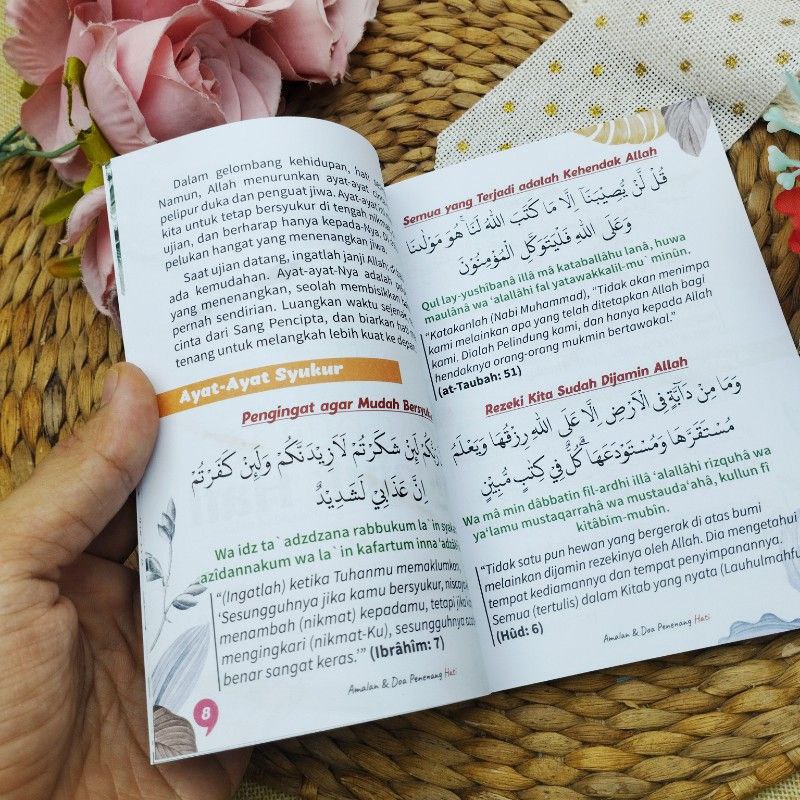 Dalam gelombang kehidupan, hati
Namun, Allah menurunkan ayat-ayat
pelipur duka dan penguat jiwa. Ayat-ayat
kita untuk tetap bersyukur di tengah nikmat
ujian, dan berharap hanya kepada-Nya.
pelukan hangat yang menenangkan jiwa.
Saat ujian datang, ingatlah janji Allah,
ada kemudahan. Ayat-ayat-Nya adalah
yang menenangkan, seolah membisikkan
pernah sendirian. Luangkan waktu sejenak
cinta dari Sang Pencipta, dan biarkan hati
tenang untuk melangkah lebih kuat ke depan
Ayat-Ayat Syukur
Pengingat agar Mudah Bersyuku
لَئِنْ شَكَرْتُمْ لَاَزِيْدَنَّكُمْ وَلَئِنْ كَفَرْتُمْ
اِنَّ عَذَابِيْ لَشَدِيْدٌ
Wa idz ta`adzdzana rabbukum la`in syaka
azîdannakum wa la`in kafartum inna 'adzâbî
"(Ingatlah) ketika Tuhanmu memaklumkan,
'Sesungguhnya jika kamu bersyukur, niscaya
menambah (nikmat) kepadamu, tetapi jika
mengingkari (nikmat-Ku), sesungguhnya
benar sangat keras.'" (Ibrâhîm: 7)
Amalan & Doa Penenang Hati
8
Semua yang Terjadi adalah Kehendak Allah
قُلْ لَّنْ يُّصِيْبَنَآ اِلَّا مَا كَتَبَ اللّٰهُ لَنَاۚ هُوَ مَوْلٰىنَا
وَعَلَى اللّٰهِ فَلْيَتَوَكَّلِ الْمُؤْمِنُوْنَ
Qul lay-yushîbanâ illâ mâ kataballâhu lanâ, huwa
maulânâ wa 'alallâhi fal yatawakkalil-mu`minûn.
"Katakanlah (Nabi Muhammad), "Tidak akan menimpa
kami melainkan apa yang telah ditetapkan Allah bagi
kami. Dialah Pelindung kami, dan hanya kepada Allah
hendaknya orang-orang mukmin bertawakal."
(at-Taubah: 51)
Rezeki Kita Sudah Dijamin Allah
وَمَا مِنْ دَاۤبَّةٍ فِى الْاَرْضِ اِلَّا عَلَى اللّٰهِ رِزْقُهَا وَيَعْلَمُ
مُسْتَقَرَّهَا وَمُسْتَوْدَعَهَا ۗ كُلٌّ فِيْ كِتٰبٍ مُّبِيْنٍ
Wa mâ min dâbbatin fil-ardhi illâ 'alallâhi rizquhâ wa
ya'lamu mustaqarrahâ wa mustauda'ahâ, kullun fî
kitâbim-mubin.
"Tidak satu pun hewan yang bergerak di atas bumi
melainkan dijamin rezekinya oleh Allah. Dia mengetahui
tempat kediamannya dan tempat penyimpanannya.
Semua (tertulis) dalam Kitab yang nyata (Lauhulmahfu
(Hûd: 6)
Amalan & Doa Penenang Hati